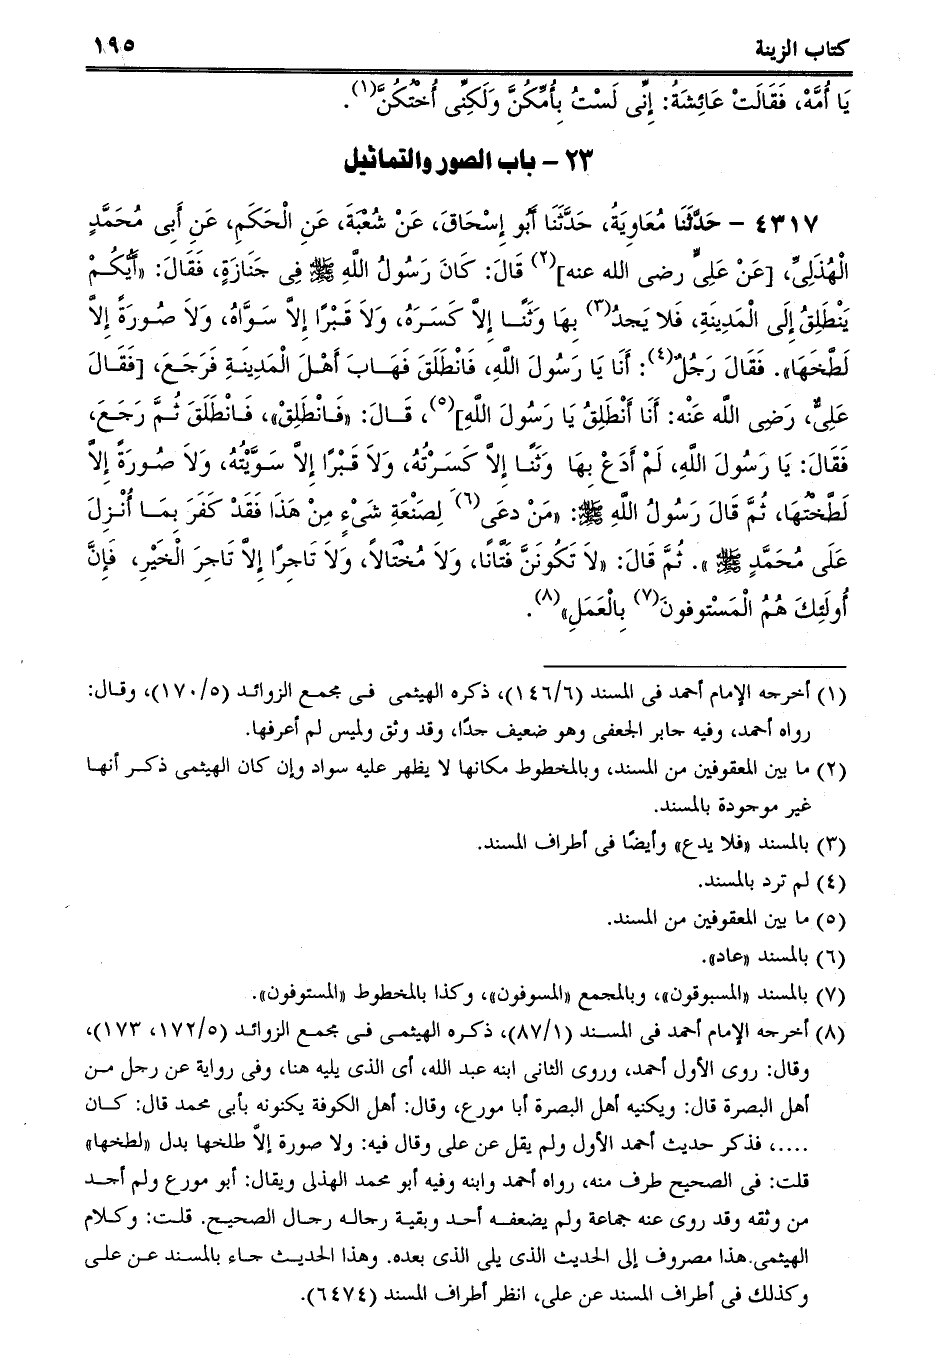 كتاب الزينة ١٩٥
يَا أُمَّهْ، فَقَالَتْ عَائِشَةُ: إِنِّى لَسْتُ بِأُمِّكُنَّ وَلَكِنِّى أُخْتُكُنَّ(١).
٢٣ – باب الصور والتماثيل
٤٣١٧ – حَدَّثَنَا مُعَاوِيَةُ، حَدَّثَنَا أَبُو إِسْحَاقَ، عَنْ شُعْبَةَ، عَنِ الْحَكَمِ، عَنِ أَبِى مُحَمَّدٍ
الْهُذَلِىِّ، [عَنْ عَلِىٍّ رضى الله عنه](٢) قَالَ: كَانَ رَسُولُ اللَّهِ ﷺ فِى جَنَازَةٍ، فَقَالَ: «أَيُّكُمْ
يَنْطَلِقُ إِلَى الْمَدِينَةِ، فَلا يَجدُ(٣) بِهَا وَثَنًا إِلاَّ كَسَرَهُ، وَلاَ قَبْرًا إِلاَّ سَوَّاهُ، وَلاَ صُورَةً إِلاَّ
لَطَّخَهَا». فَقَالَ رَجُلٌ(٤): أَنَا يَا رَسُولَ اللَّهِ، فَانْطَلَقَ فَهَابَ أَهْلَ الْمَدِينَةِ فَرَجَعَ، [فَقَالَ
عَلِىٌّ، رَضِى اللَّه عَنْه: أَنَا أَنْطَلِقُ يَا رَسُولَ اللَّهِ](٥)، قَالَ: «فَانْطَلِقْ»، فَانْطَلَقَ ثُمَّ رَجَعَ،
فَقَالَ: يَا رَسُولَ اللَّهِ، لَمْ أَدَعْ بِهَا وَثَنًا إِلاَّ كَسَرْتُهُ، وَلاَ قَبْرًا إِلاَّ سَوَّيْتُهُ، وَلاَ صُورَةً إِلاَّ
لَطَّخْتُهَا، ثُمَّ قَالَ رَسُولُ اللَّهِ ﷺ: «مَنْ دعَى(٦) لِصَنْعَةِ شَىْءٍ مِنْ هَذَا فَقَدْ كَفَرَ بِمَا أُنْزِلَ
عَلَى مُحَمَّدٍ ﷺ». ثُمَّ قَالَ: «لاَ تَكُونَنَّ فَتَّانًا، وَلاَ مُخْتَالاً، وَلاَ تَاجِرًا إِلاَّ تَاجِرَ الْخَيْرِ، فَإِنَّ
أُولَئِكَ هُمُ الْمَسْتوفونَ(٧) بِالْعَمَلِ»(٨).
(١) أخرجه الإمام أحمد فى المسند (١٤٦/٦)، ذكره الهيثمى فى مجمع الزوائد (١٧٠/٥)، وقال:
رواه أحمد، وفيه جابر الجعفى وهو ضعيف جدًا، وقد وثق ولميس لم أعرفها.
(٢) ما بين المعقوفين من المسند، وبالمخطوط مكانها لا يظهر عليه سواد وإن كان الهيثمى ذكر أنها
غير موجودة بالمسند.
(٣) بالمسند «فلا يدع» وأيضًا فى أطراف المسند.
(٤) لم ترد بالمسند.
(٥) ما بين المعقوفين من المسند.
(٦) بالمسند «عاد».
(٧) بالمسند «المسبوقون»، وبالمجمع «المسوفون»، وكذا بالمخطوط «المستوفون».
(٨) أخرجه الإمام أحمد فى المسند (٨٧/١)، ذكره الهيثمى فى مجمع الزوائد (١٧٢/٥، ١٧٣)،
وقال: روى الأول أحمد، وروى الثانى ابنه عبد الله، أى الذى يليه هنا، وفى رواية عن رجل من
أهل البصرة قال: ويكنيه أهل البصرة أبا مورع، وقال: أهل الكوفة يكنونه بأبى محمد قال: كان
....، فذكر حديث أحمد الأول ولم يقل عن على وقال فيه: ولا صورة إلاَّ طلخها بدل «لطخها»
قلت: فى الصحيح طرف منه، رواه أحمد وابنه وفيه أبو محمد الهذلى ويقال: أبو مورع ولم أحد
من وثقه وقد روى عنه جماعة ولم يضعفه أحد وبقية رجاله رجال الصحيح. قلت: وكلام
الهيثمى.هذا مصروف إلى الحديث الذى يلى الذى بعده. وهذا الحديث جاء بالمسند عن على
وكذلك فى أطراف المسند عن على، انظر أطراف المسند (٦٤٧٤).